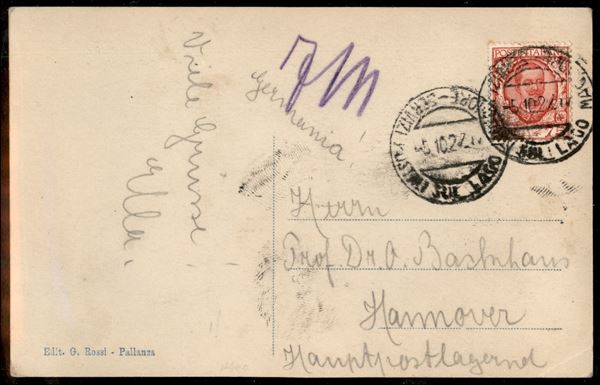 Viele Grüsse!
Ella.
Germania!
POSTE ITALIANE
5.10.27
SUL LAGO
5.10.27
LAGO MAG
Herrn
Prof. Dr. O.
Hannover
Hauptpostlagernd
Edit. G. Rossi - Pallanza